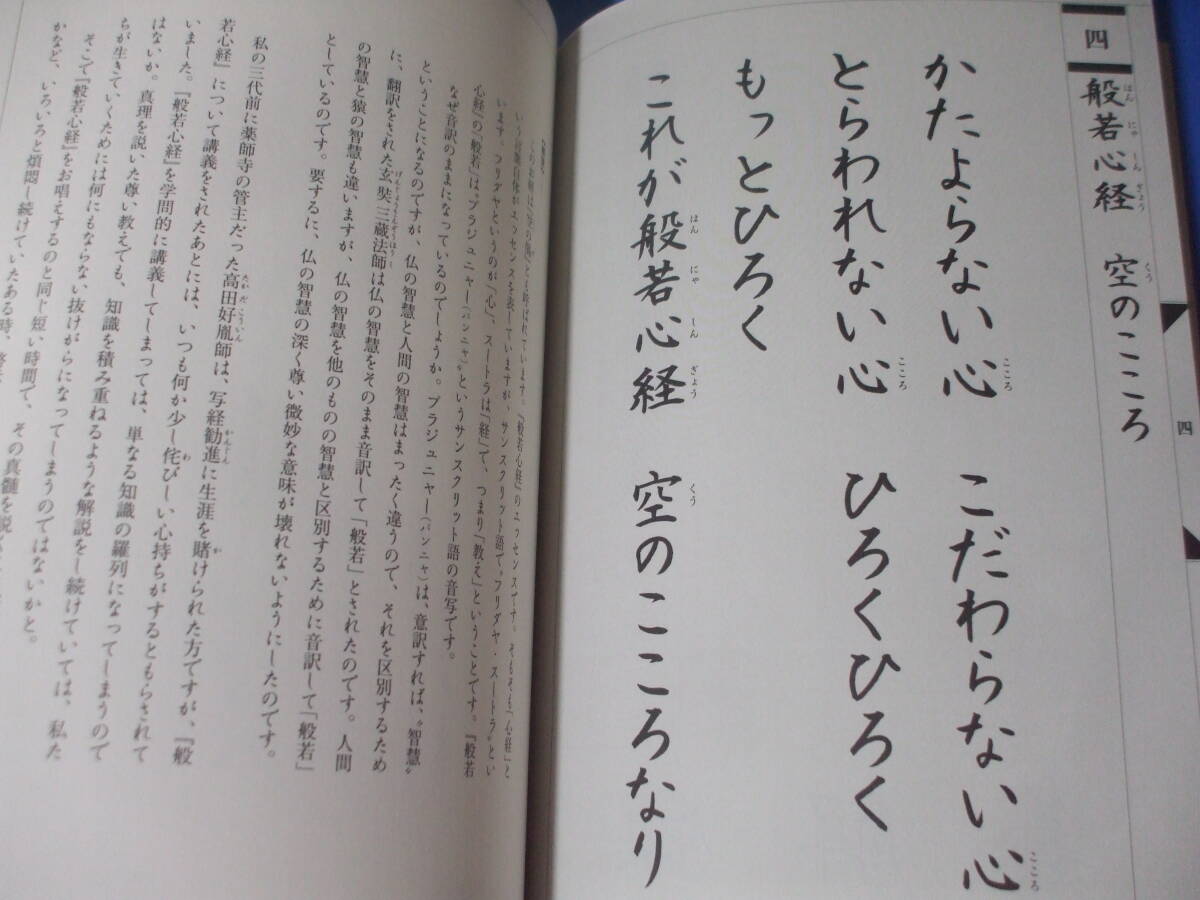 四
般若心経 空のこころ
四
かたよらない心 こだわらない心
とらわれない心 ひろくひろく
もっとひろく
これが般若心経 空のこころなり
います。フリダヤというのが「心」、スートラは「経」で、つまり「教え」ということです。『般若
心経』の「般若」は〝プラジュニャー（パンニャ）〟というサンスクリット語の音写です。
なぜ音訳のままになっているのでしょうか。プラジュニャー（パンニャ）は、意訳すれば、〝智慧〟
ということになるのですが、仏の智慧と人間の智慧はまったく違うので、それを区別するため
に、翻訳をされた玄奘三蔵法師は仏の智慧をそのまま音訳して「般若」とされたのです。人間
の智慧と猿の智慧も違いますが、仏の智慧を他のものの智慧と区別するために音訳して「般若」
としているのです。要するに、仏の智慧の深く尊い微妙な意味が壊れないようにしたのです。
私の三代前に薬師寺の管主だった高田好胤師は、写経勧進に生涯を賭けられた方ですが、『般
若心経』について講義をされたあとには、いつも何か少し侘びしい心持ちがするともらされて
いました。『般若心経』を学問的に講義してしまっては、単なる知識の羅列になってしまうので
はないか。真理を説いた尊い教えでも、知識を積み重ねるような解説をし続けていては、私た
ちが生きていくためには何にもならない抜けがらになってしまうのではないかと。
そこで『般若心経』をお唱えするのと同じ短い時間で、その真髄を説
かなど、いろいろと煩悶し続けていたある時、